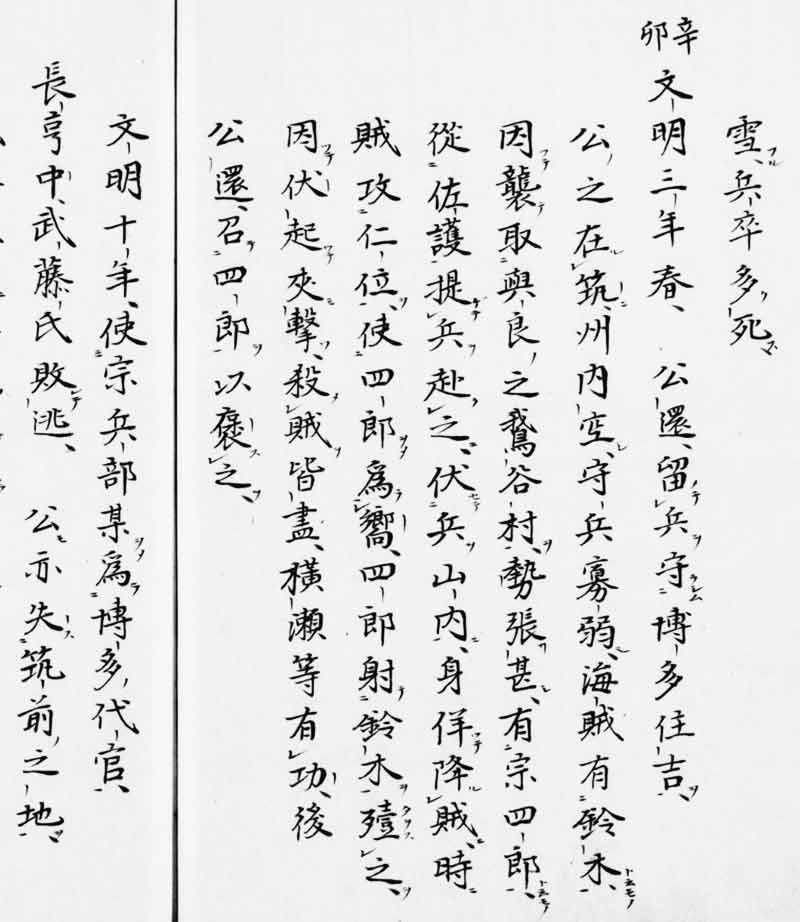 雪兵卒多死
辛卯
文明三年春公還留兵守博多住吉
公之在筑州内空守兵寡弱海賊有鈴木
因襲取與良之鵞谷村勢張甚有宗四郎
從佐護提兵赴之伏兵山内身佯降賊時
賊攻仁位使四郎爲嚮四郎射鈴木殪之
因伏起夾擊殺賊皆盡橫瀬等有功後
公還召四郎以褒之
文明十年使宗兵部某爲博多代官
長亨中武藤氏敗逃公亦失筑前之地